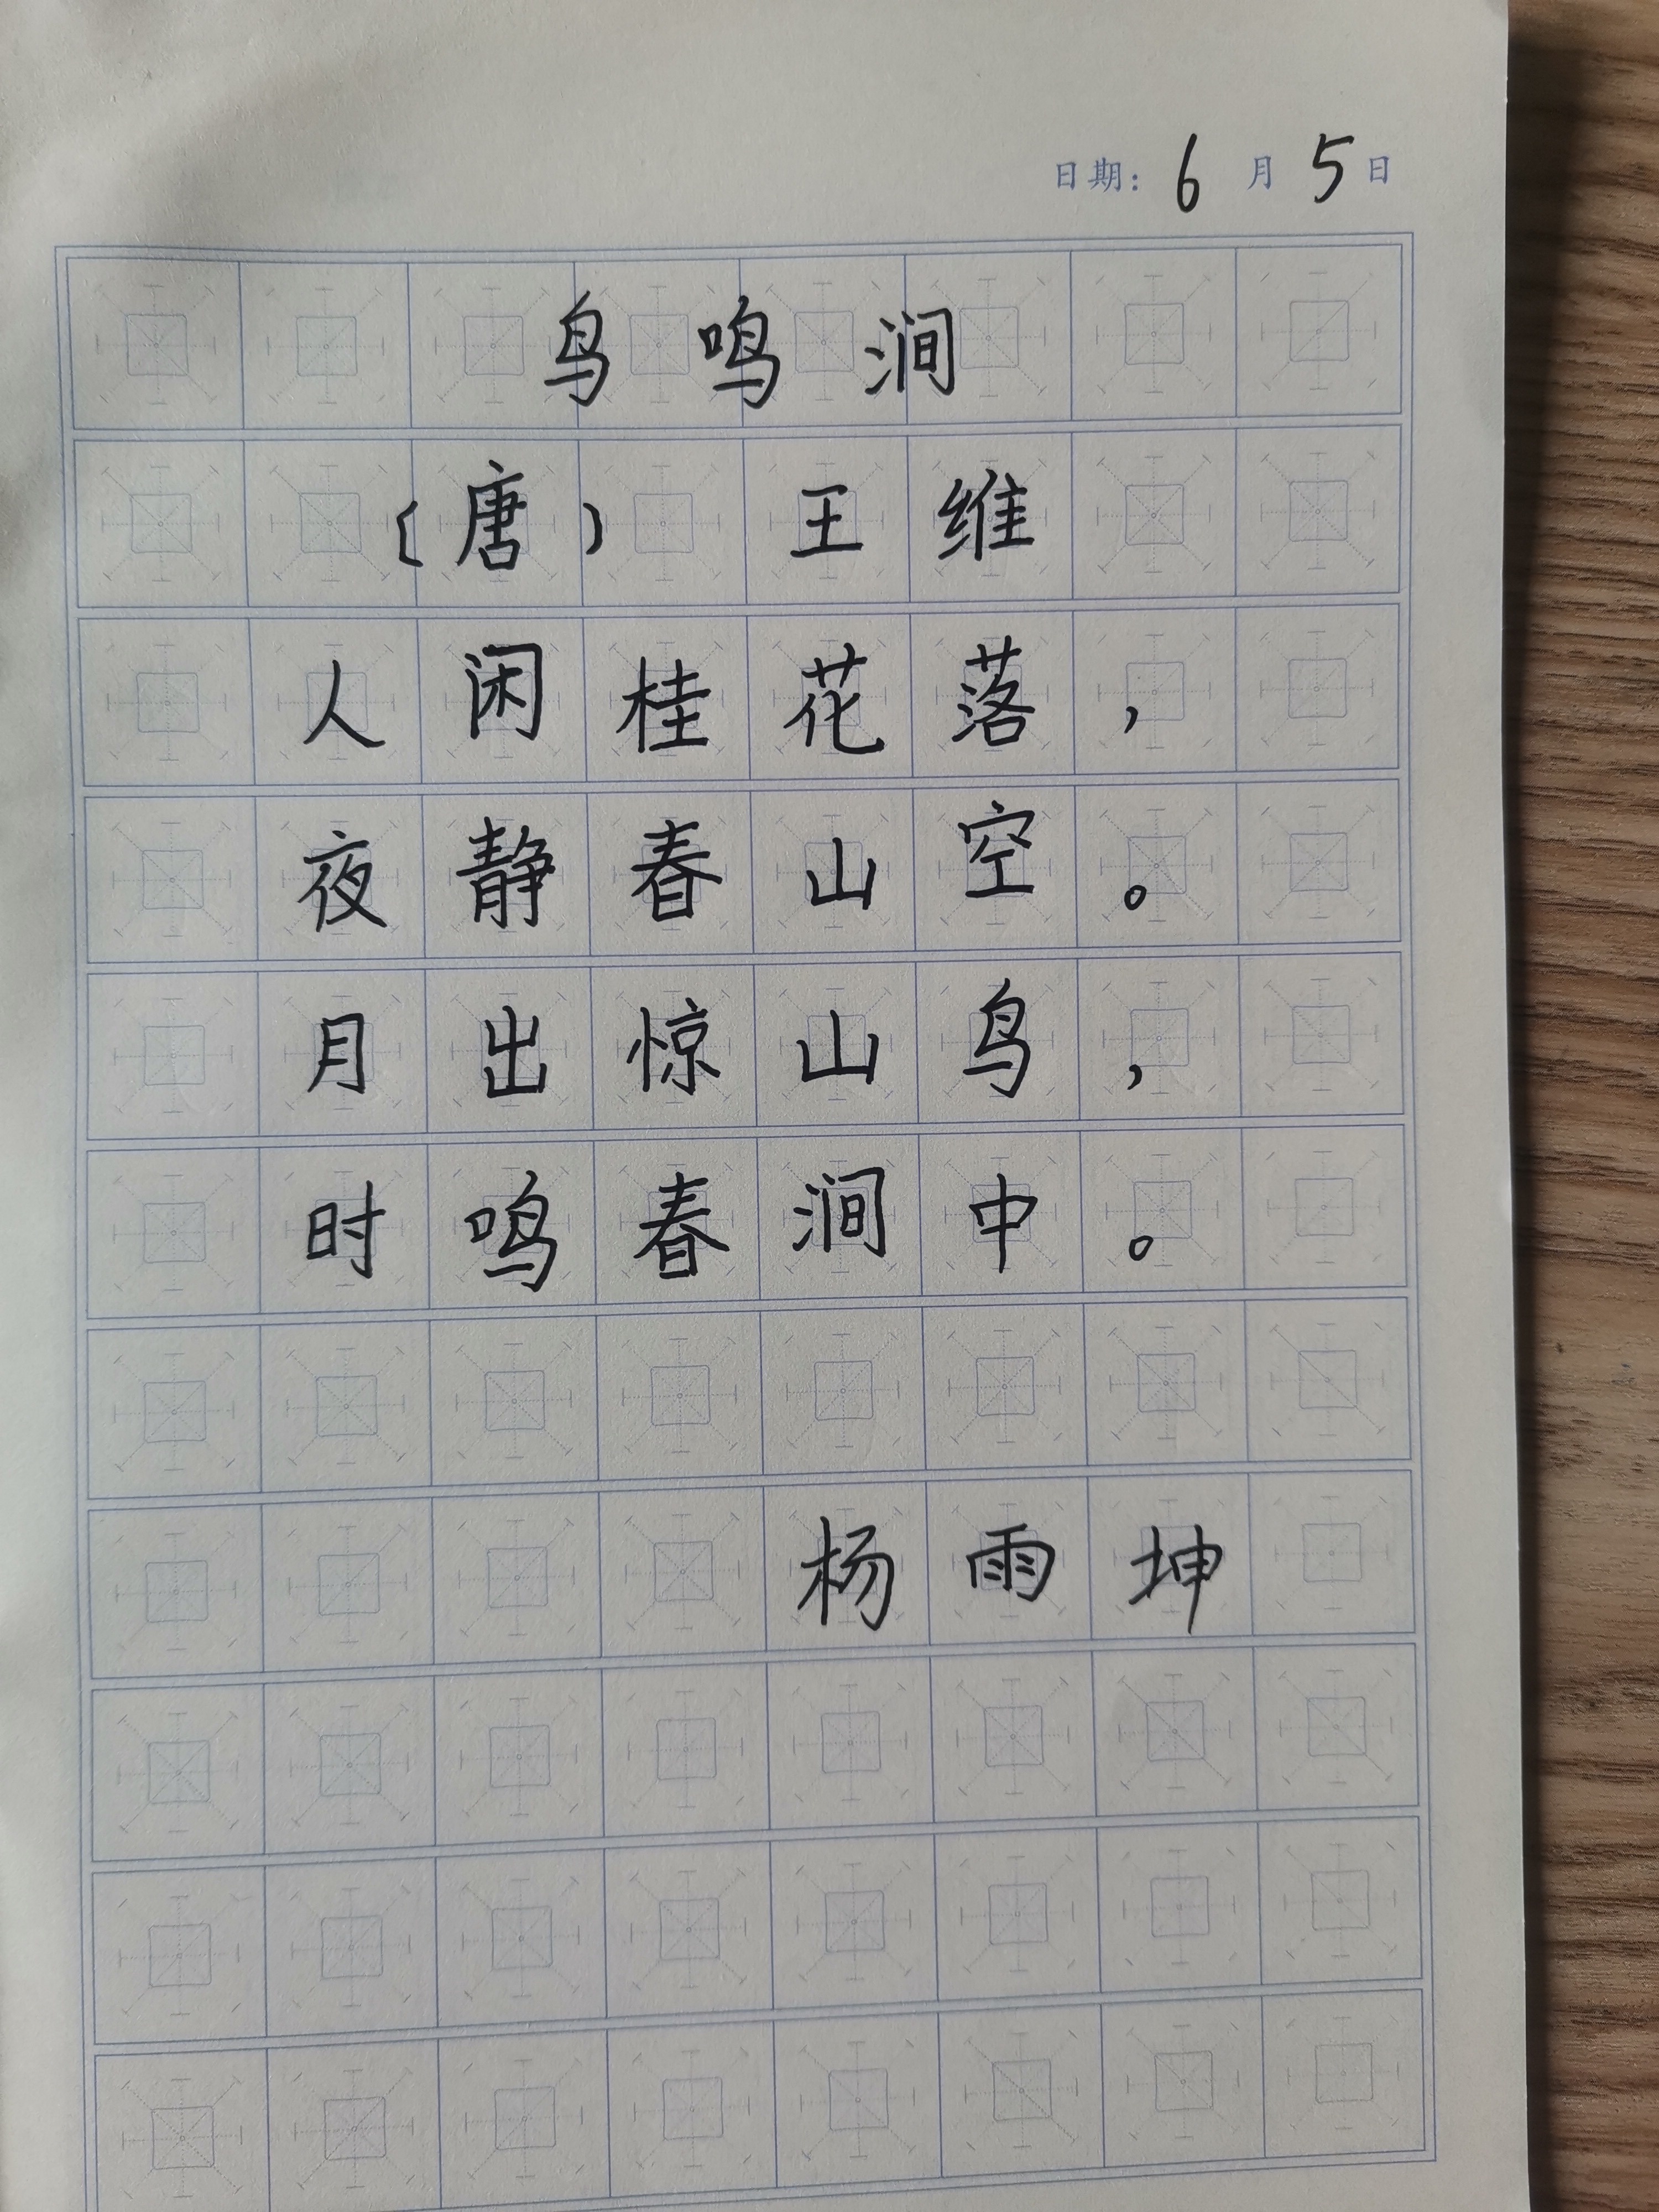 日期：6月5日
鸟鸣涧
〔唐） 王维
人闲桂花落，
夜静春山空。
月出惊山鸟，
时鸣春涧中。
杨雨坤